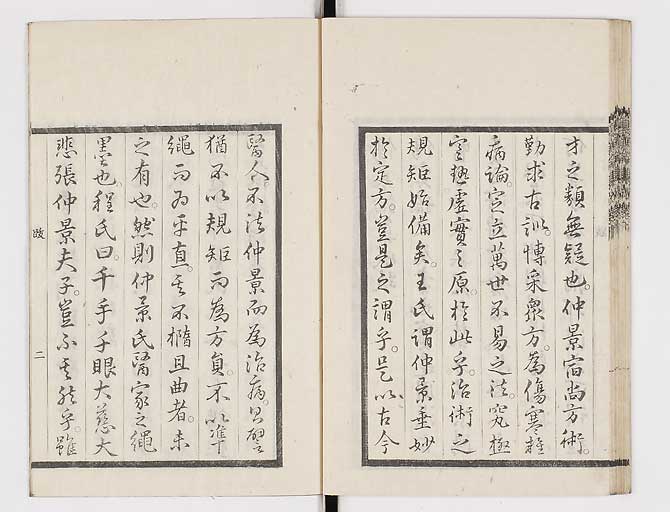 才之類無疑也。仲景宿尚方術。
勤求古訓。博采衆方。為傷寒雜
病論。定立萬世不易之法。究極
寒熱虛實之原。於此乎治術之
規矩始備矣。王氏謂仲景垂妙
於定方。豈是之謂乎。是以古今
醫人。不法仲景而為治病。譬
猶不以規矩而為方員。不以準
繩而為平直。其不橢且曲者。未
之有也。然則仲景氏醫家之繩
墨也。程氏曰千手千眼大慈大
悲張仲景夫子。豈不其然乎。雖
跋
二